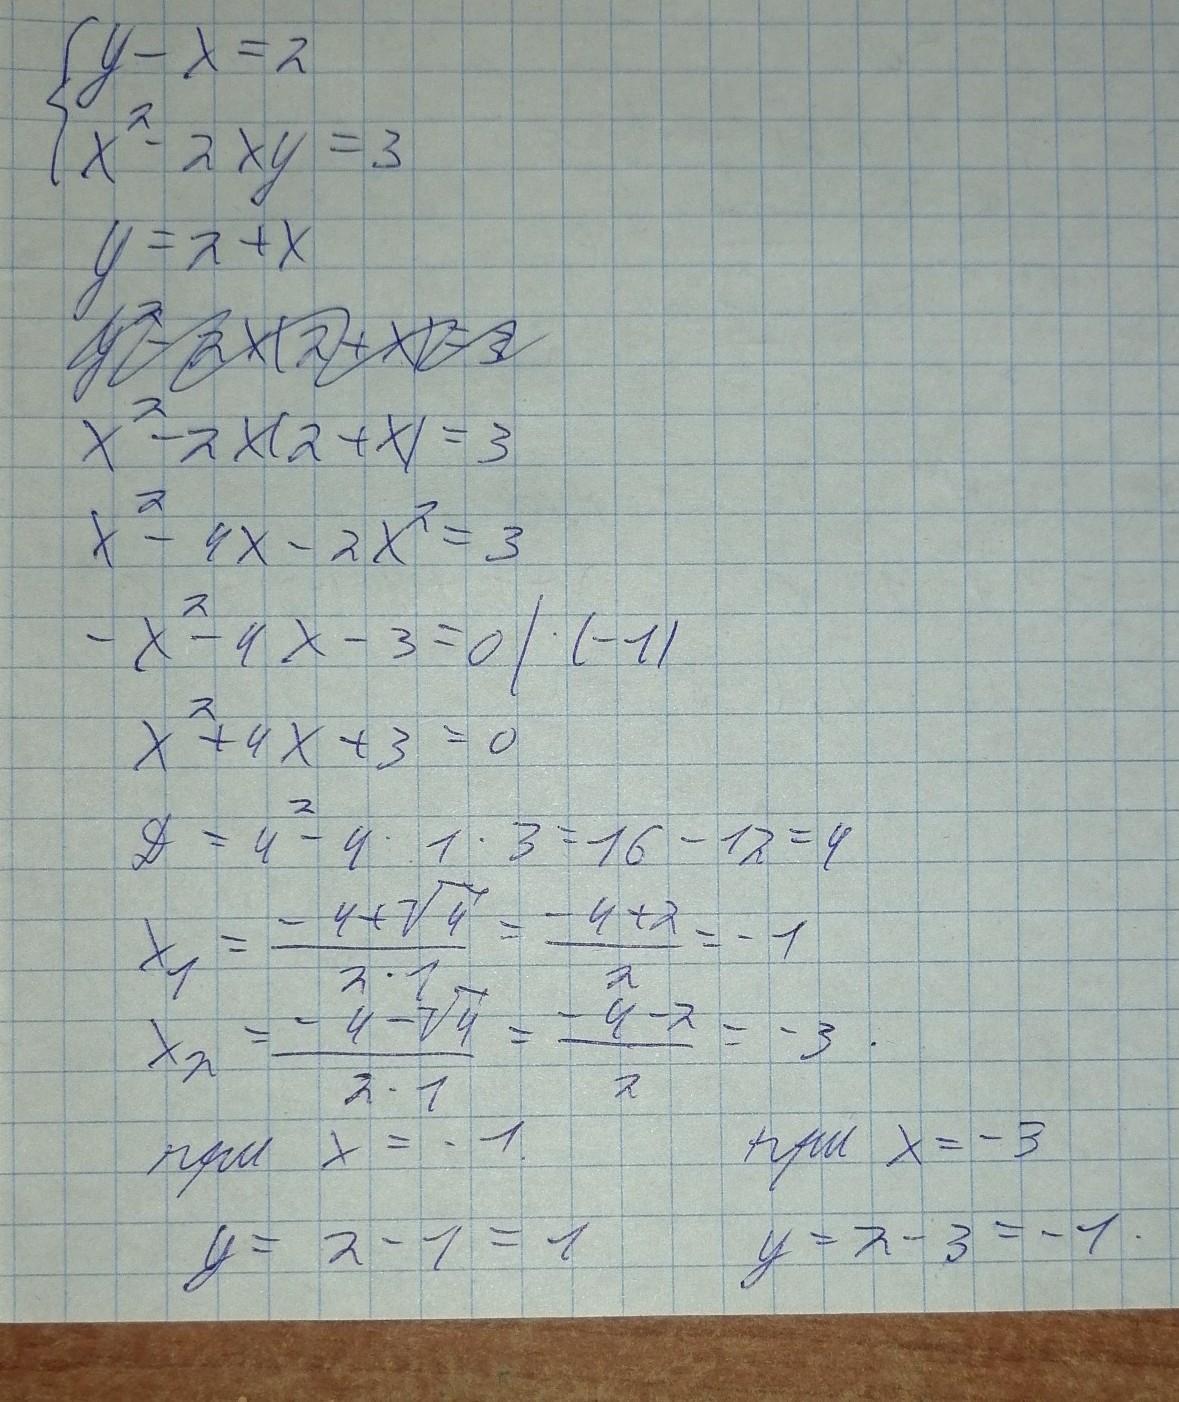 { y - x = 2
x² - 2xy = 3
y = 2 + x
y² - 2x(2 + x) = 3
x² - 2x(2 + x) = 3
x² - 4x - 2x² = 3
-x² - 4x - 3 = 0 | · (-1)
x² + 4x + 3 = 0
D = 4² - 4 · 1 · 3 = 16 - 12 = 4
x₁ = (-4 + √4)/(2 · 1) = (-4 + 2)/2 = -1
x₂ = (-4 - √4)/(2 · 1) = (-4 - 2)/2 = -3.
при x = -1. при x = -3
y = 2 - 1 = 1 y = 2 - 3 = -1.